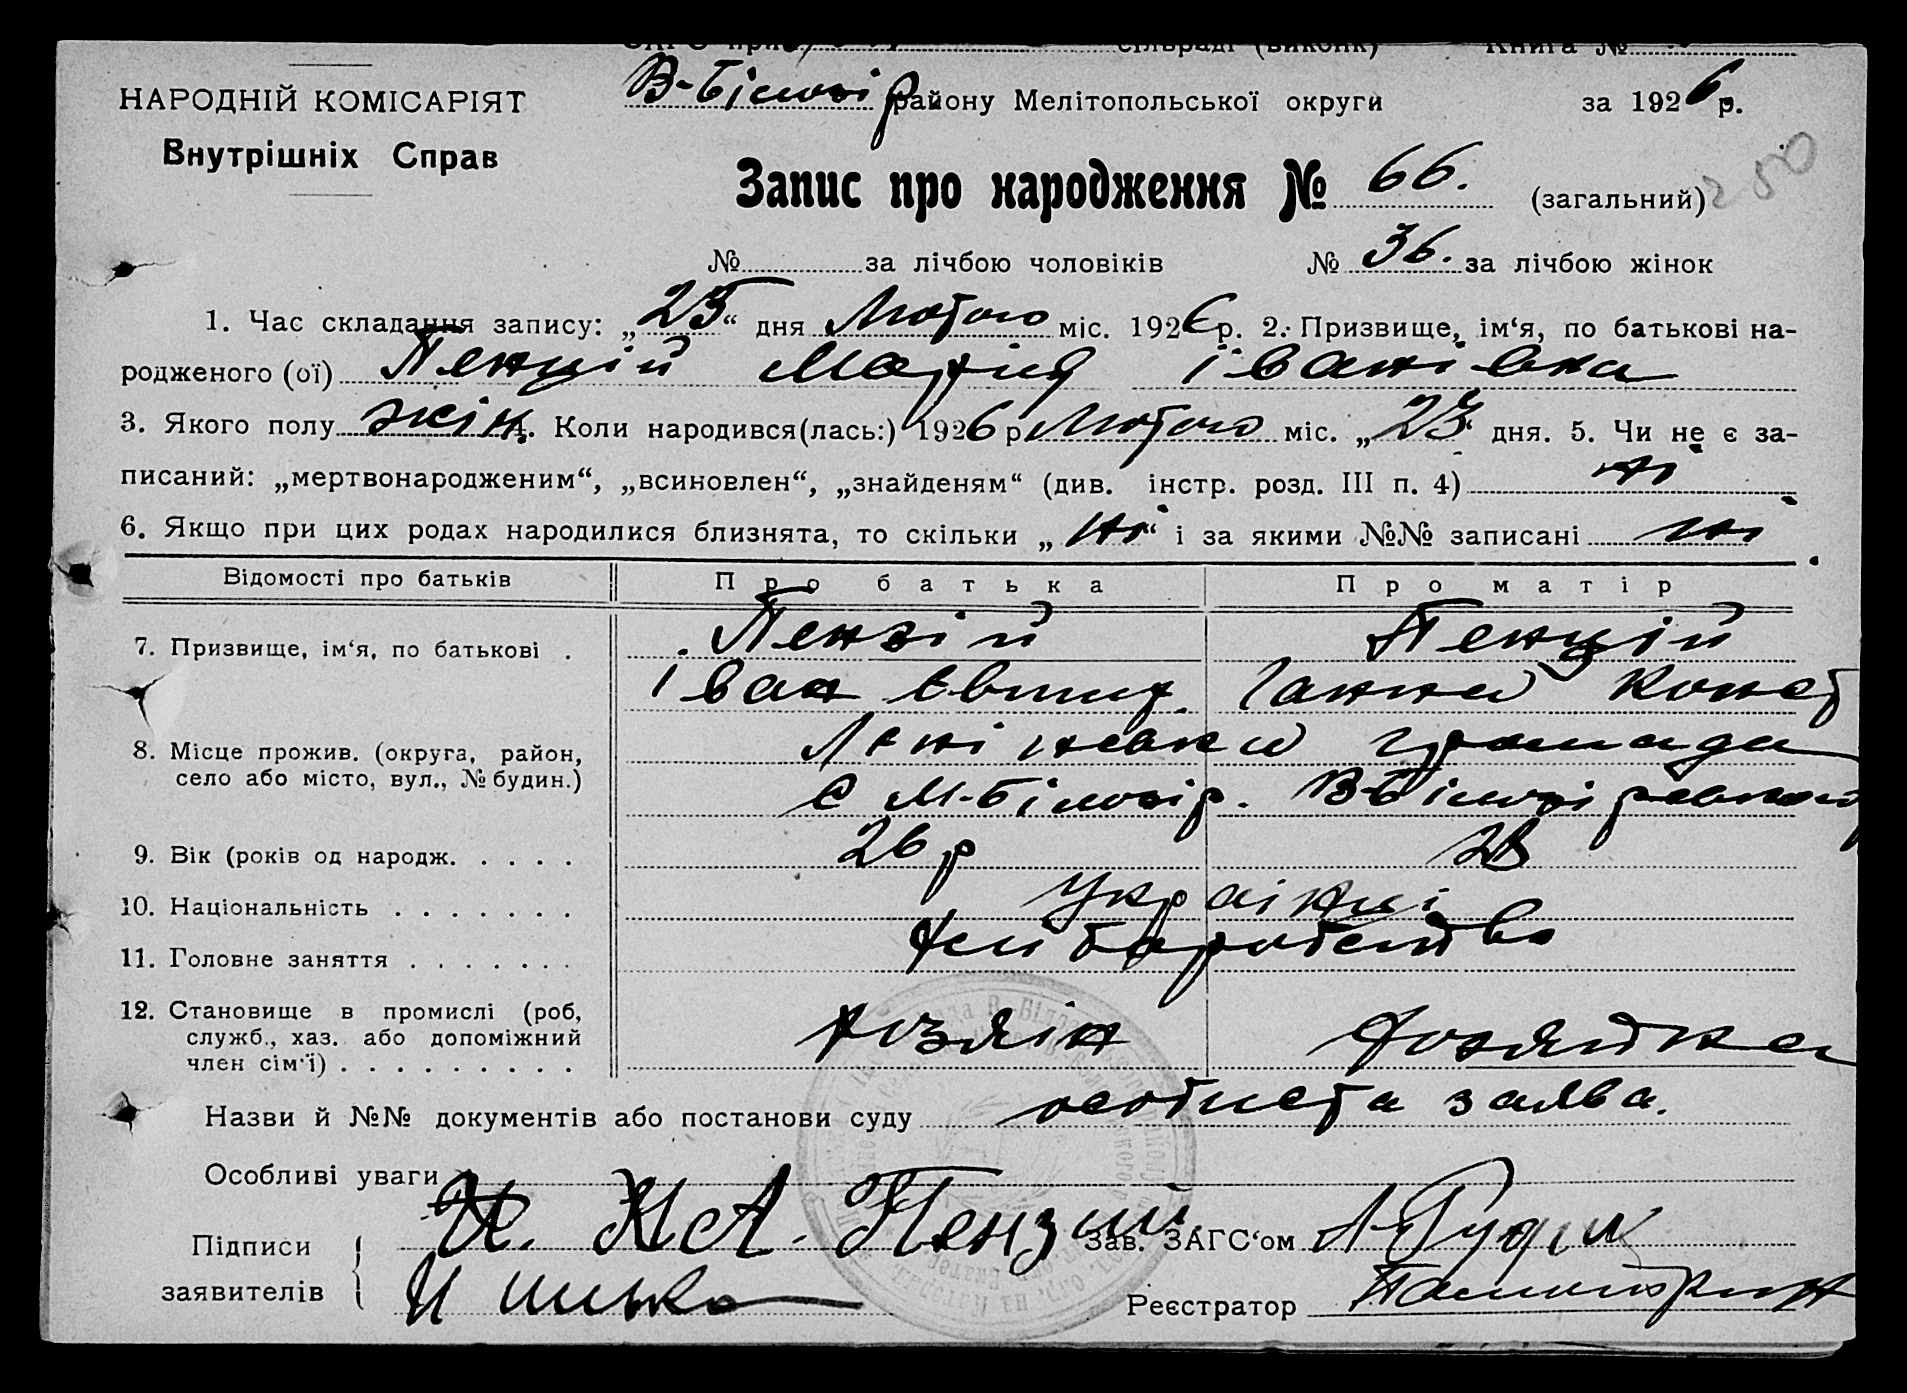 сільраді (виконк) Книга №
НАРОДНІЙ КОМІСАРІЯТ
Внутрішніх Справ
В-Білозір району Мелітопольської округи за 1926 р.
Запис про народження № 66. (загальний)
250
№ за лічбою чоловіків № 36. за лічбою жінок
1. Час складання запису: „25“ дня Лютого міс. 1926 р. 2. Призвище, ім‘я, по батькові на-
родженого (ої) Пенцій Марія Іванівна
3. Якого полу жін. 4. Коли народився(лась:) 1926 р Лютого міс. „23“ дня. 5. Чи не є за-
писаний: „мертвонародженим“, „всиновлен“, „знайденям“ (див. інстр. розд. III п. 4) ні
6. Якщо при цих родах народилися близнята, то скільки „ні“ і за якими №№ записані ні
Відомості про батьків Про батька Про матір
7. Призвище, ім‘я, по батькові . Пензій Пенцій
Іван Ганна Конст
8. Місце прожив. (округа, район,
село або місто, вул., № будин.)
Ленінська громада
с М-Білозір. В-Білозірського
9. Вік (років од народж. . . . . 26 р
10. Національність . . . . . . . Українці
11. Головне заняття . . . . . . . хліборобство
12. Становище в промислі (роб,
служб., хаз. або допоміжний
член сім‘ї) . . . . . . . . . .
хозяін хозяйка
Назви й №№ документів або постанови суду особиста заява.
Особливі уваги
Підписи
заявителів
Пензий
Зав. ЗАГС‘ом
Реєстратор